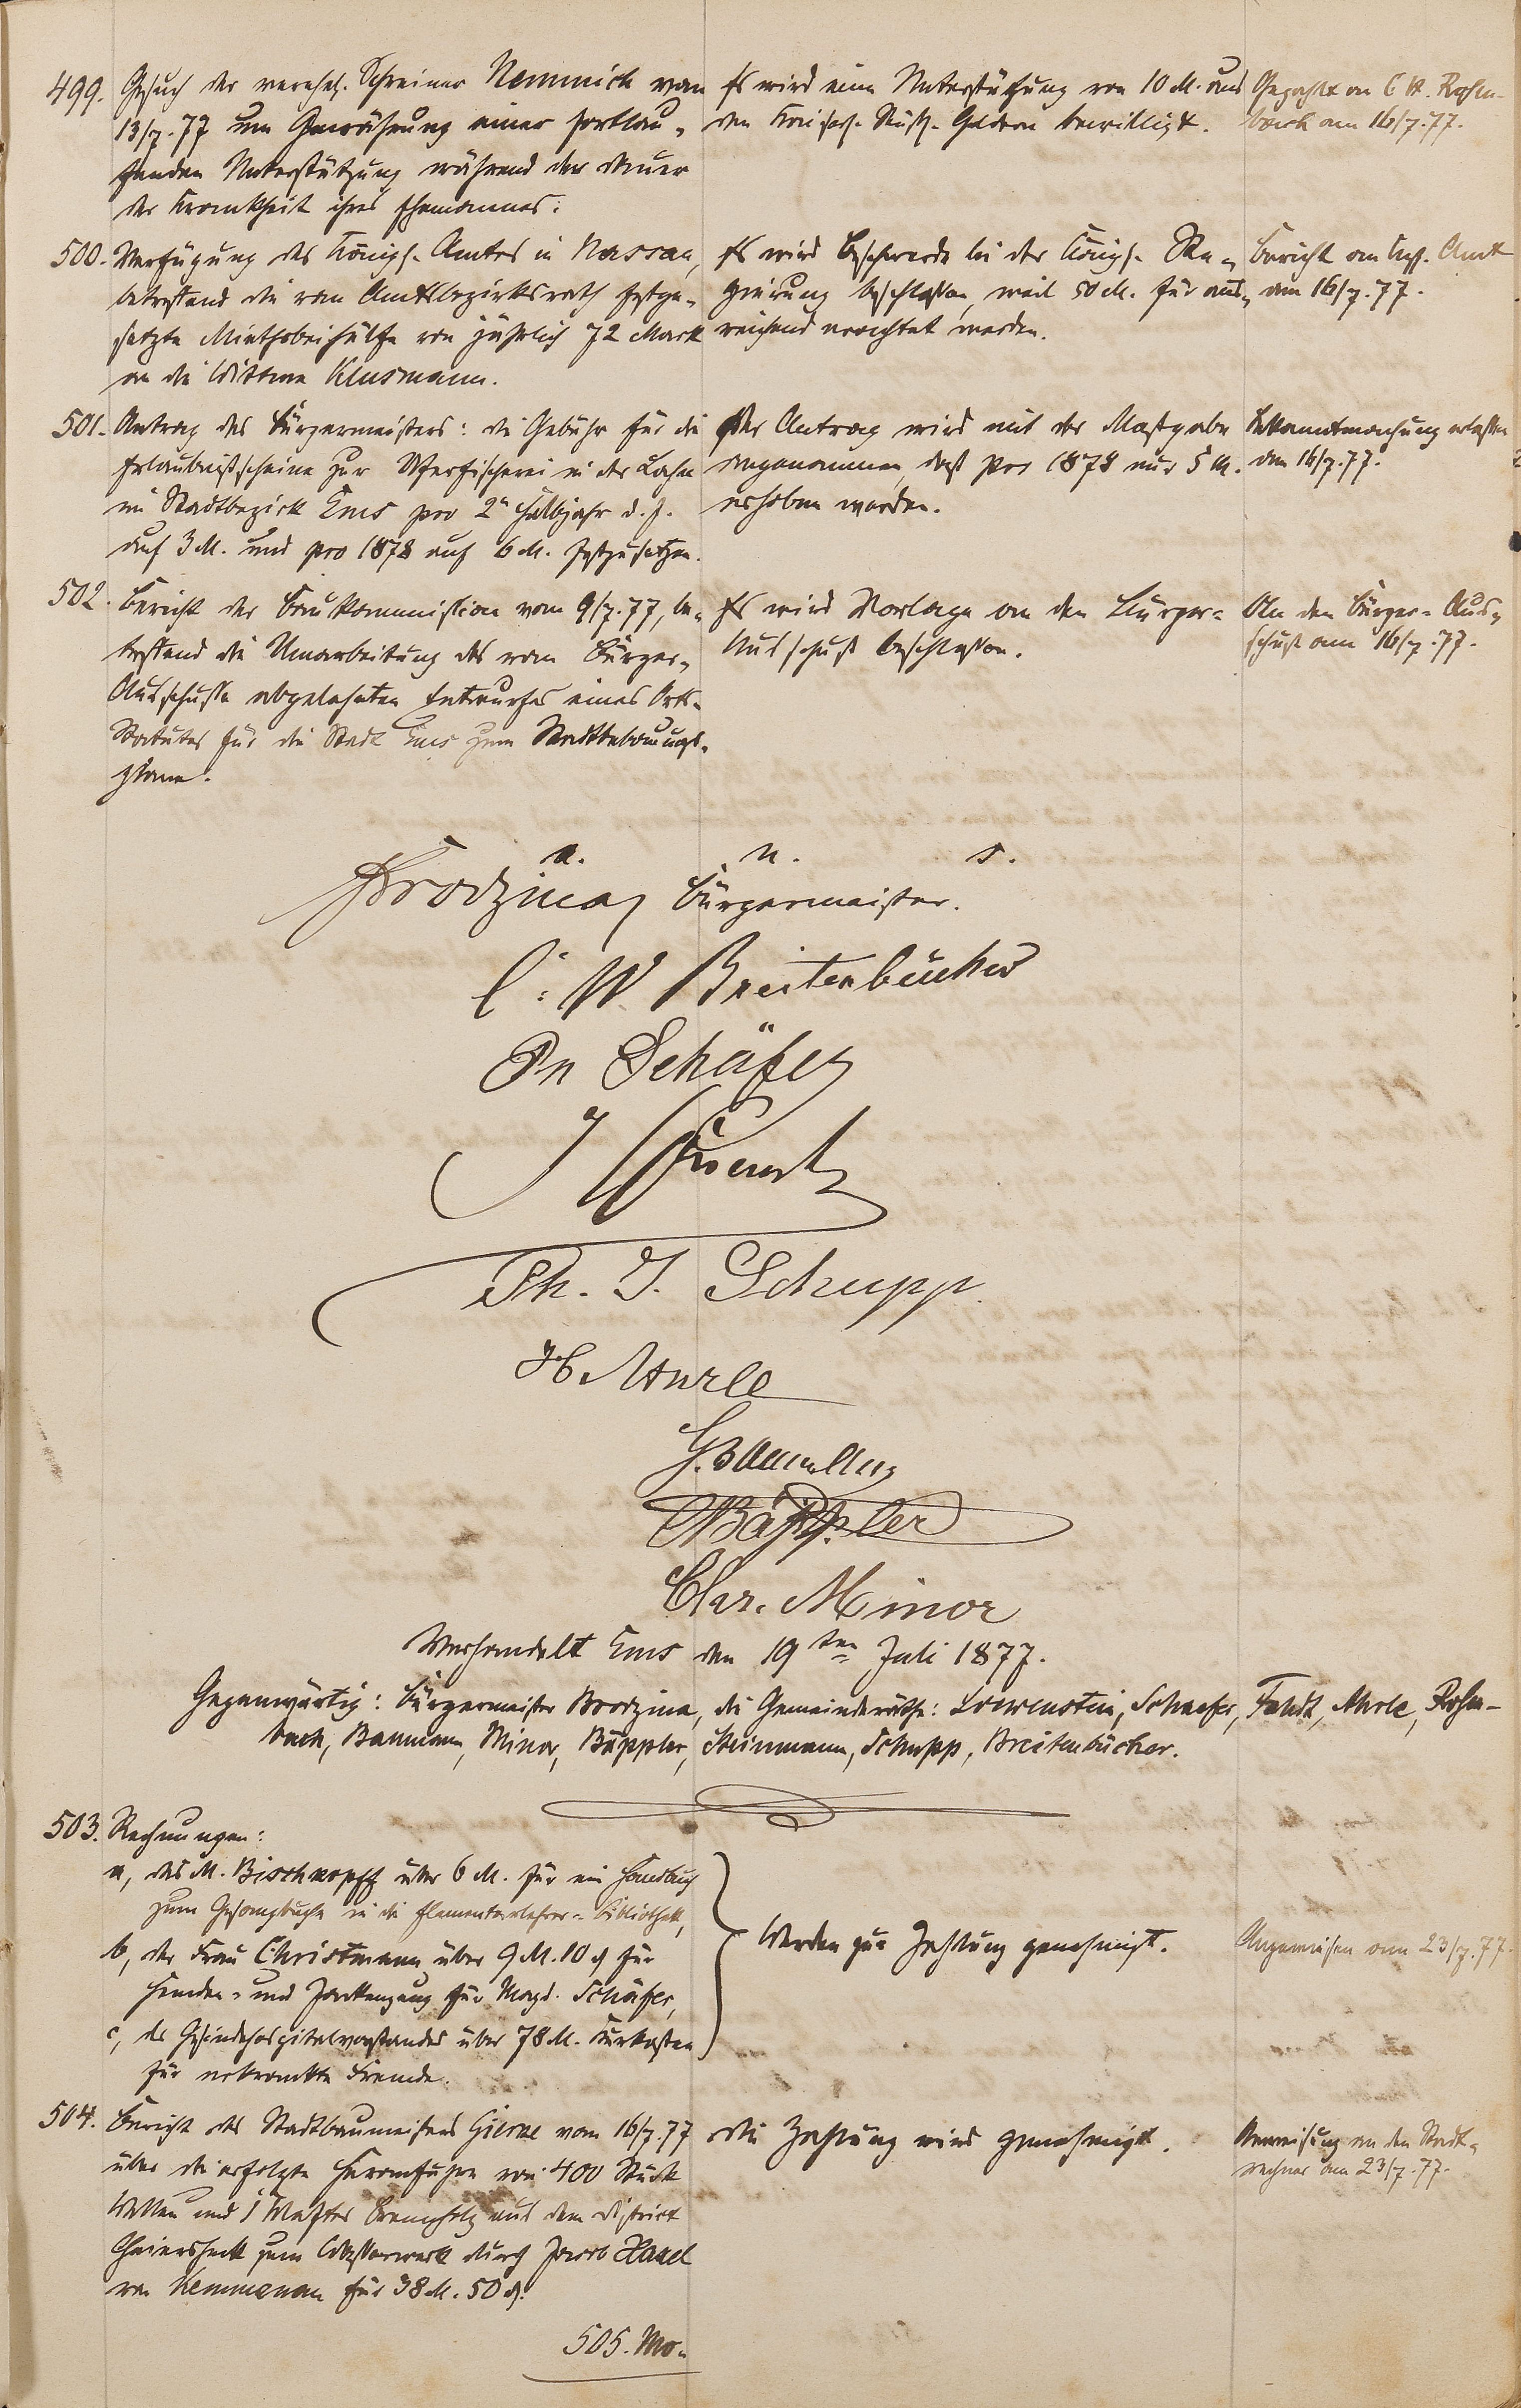 499. Gesuch der verehel. Schreiner Nemnich vom
13/7.77 um Gewährung einer fortlau-
fenden Unterstützung während der Dauer
der Krankheit ihres Ehemannes.
Es wird eine Unterstützung von 10 M. aus
den Geldern bewilligt.
Gezahlt an Rohm-
bach am 16/7.77.
500. Verfügung des Königl. Amtes in Nassau,
betreffend die vom Amtsbezirksrath festge-
setzte Miethsbeihülfe von jährlich 72 Mark
an die Wittwe Klusmann.
Es wird Beschwerde bei der Königl. Re-
gierung beschlossen, weil 50 M. für aus-
reichend erachtet werden.
Bericht an Kgl. Amt
am 16/7.77.
501. Antrag des Bürgermeisters: die Gebühr für die
Erlaubnißscheine zur Uferfischerei in der Lahn
im Stadtbezirk Ems pro 2n Halbjahr d. J.
auf 3 M. und pro 1878 auf 6 M. festzusetzen.
Der Antrag wird mit der Maßgabe
angenommen, daß pro 1878 nur 5 M.
erhoben werden.
Bekanntmachung erlassen
den 16/7.77.
502. Bericht der Baukommission vom 9/7.77, be-
treffend die Umarbeitung des vom Bürger-
Ausschusse abgelehnten Entwurfes eines Orts-
Statutes für die Stadt Ems zum Stadtbebauungs-
plane.
Es wird Vorlage an den Bürger-
Ausschuß beschlossen.
An den Bürger-Aus-
schuß am 16/7.77.
a. u. s.
Brodzina, Bürgermeister.
C. W Breitenbücher
Dr Schäfer
Ph. J. Schupp
H. Ahrle
G. Baumann
Bäppler
Chr. Minor
Verhandelt Ems den 19ten Juli 1877.
Gegenwärtig: Bürgermeister Brodzina, die Gemeinderäthe: Loewenstein, Schaefer, Fendt, Ahrle, Rohm-
bach, Baumann, Minor, Bäppler, Steinmann, Schupp, Breitenbücher.
503. Rechnungen:
a, des M. Bischkopff über 6 M. für ein Handbuch
zum Gesangbuche in die Elementarlehrer-Bibliothek,
b, der Frau Christmann über 9 M. 10 ₰ für
Hemden- und Jackenzeug für Magd. Schäfer,
c, des Gesindehospitalvorstandes über 78 M. Kurkosten
für erkrankte Fremde.
Werden zur Zahlung genehmigt.
Angewiesen am 23/7.77.
504. Bericht des Stadtbaumeisters Gierke vom 16/7.77
über die erfolgte Heranfuhre von 400 Stück
Wellen und 1 Klafter Brennholz aus dem District
zum durch Jacob Hasel
von Kemmenau für 38 M. 50 ₰.
Die Zahlung wird genehmigt.
Anweisung an den Stadt-
rechner am 23/7.77.
505. Mo-